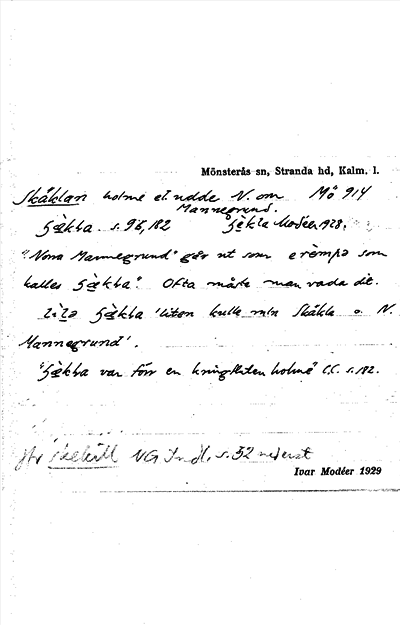 Mönsterås sn, Stranda hd, Kalm. l.
Skäklan holme el. udde N. om Mö 914
Mannegrund.
s. 98, 182 Modéer 1928.
"Norra Mannegrund" går ut som e rèmpə som
kalles Ofta måste man vada dit.
lilə 'liten kulle mln Skäkla o. N.
Mannegrund'.
var förr en kringfluten holme" l.c. s. 182.
jfr skekäll VG Inl. s. 52 nederst
Ivar Modéer 1929